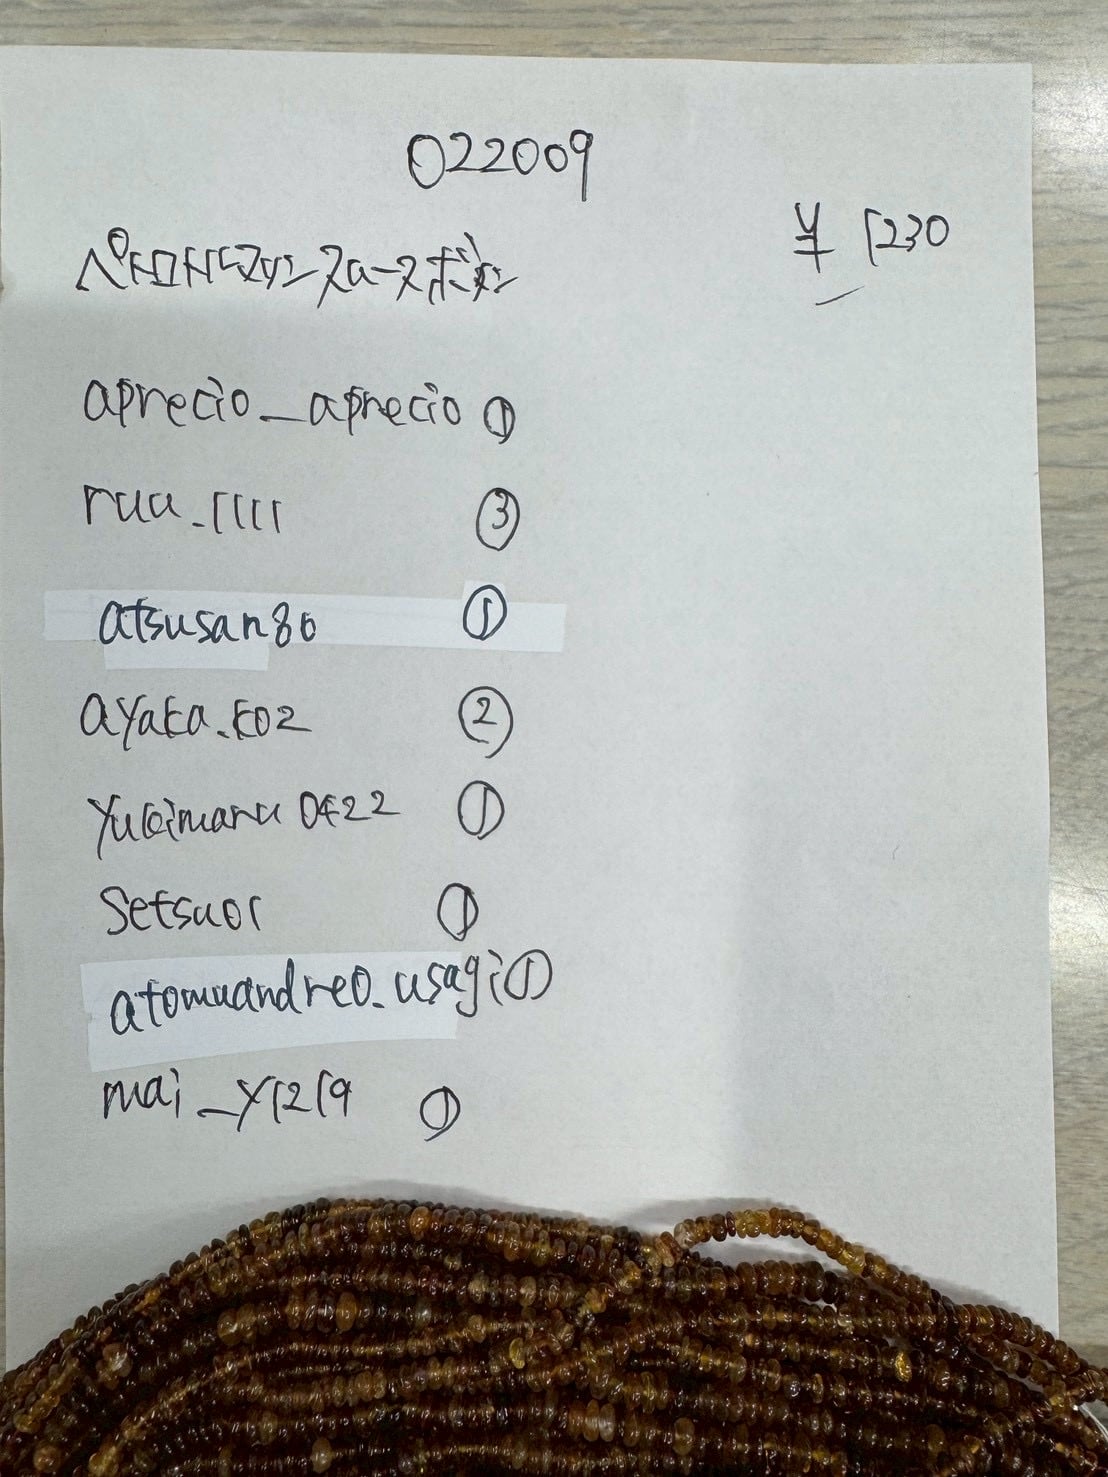 022009
¥ 1230
ペトロトルマリンスムースボタン
aprecio_aprecio ①
ruu_1111 ③
atsusan80 ①
ayaka.k02 ②
yukimaru0422 ①
Setsuo1 ①
atomuandreo_usagi ①
mai_y1219 ①